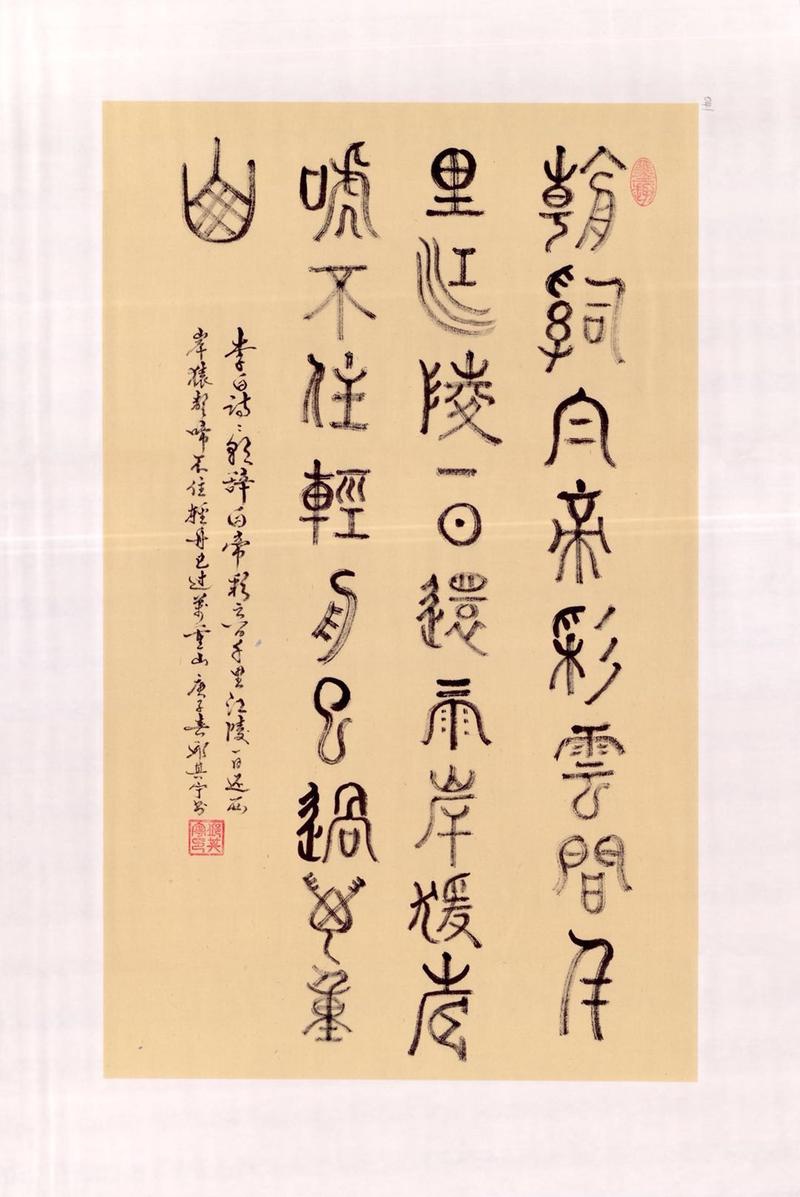 朝辭白帝彩雲間千
里江陵一日還兩岸猨声
嗁不住輕舟已過萬重
山
李白詩 朝辞白帝彩云间千里江陵一日还两
岸猿声啼不住轻舟已过萬重山 庚子春